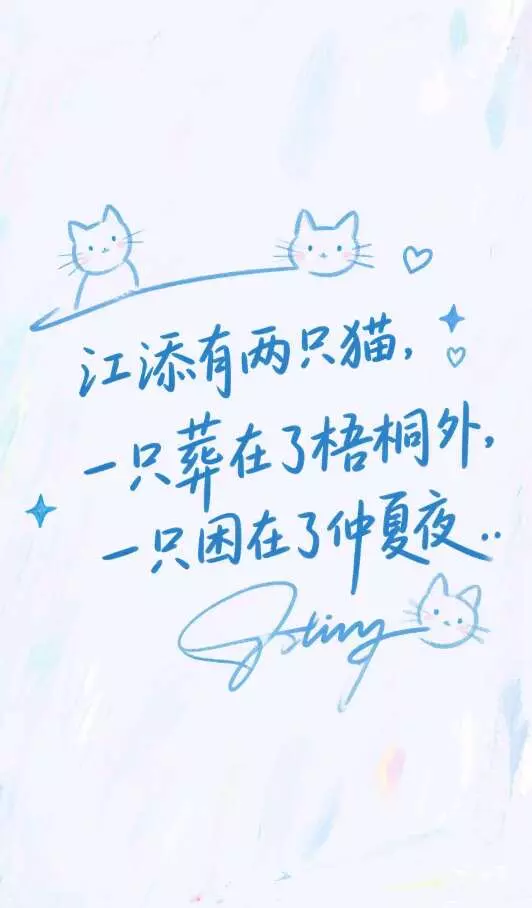 江添有两只猫,
一只葬在了梧桐外,
一只困在了仲夏夜..